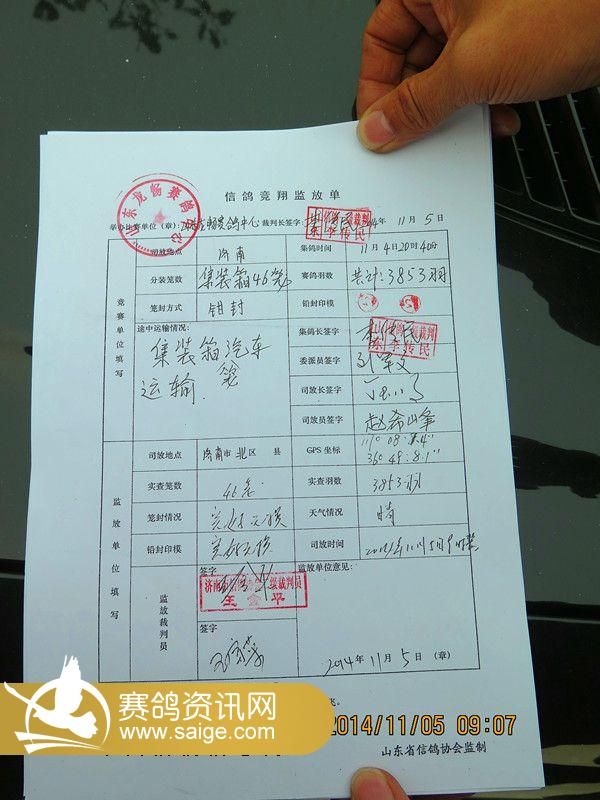 信鸽竞翔监放单
举办比赛单位(章): 赛鸽中心 裁判长签字: 年 11月5日
山东龙畅赛鸽中心
司放地点 济南 集鸽时间 11月4日20时40分
分装笼数 集装箱46笼 赛鸽羽数 共计:3853羽
笼封方式 钳封 铅封印模
竞赛单位填写
途中运输情况: 集鸽长签字
集装箱汽车
运输.
级裁判
李传民
委派员签字
司放长签字
司放员签字 赵希峰
司放地点 济南市北区 县 GPS 坐标 117° 08′ 8.4″
36° 49′ 8.1″
实查笼数 46笼 实查羽数 3853羽
笼封情况 完好无损 天气情况 晴
铅封印模 完好无损 司放时间 2014年11月5日
监放单位填写
监放裁判员
签字 监放单位意见:
级裁判员
签字
2014年11月5日(章)
赛鸽资讯网
www.saige.com
2014/11/05 09:07
山东省信鸽协会监制